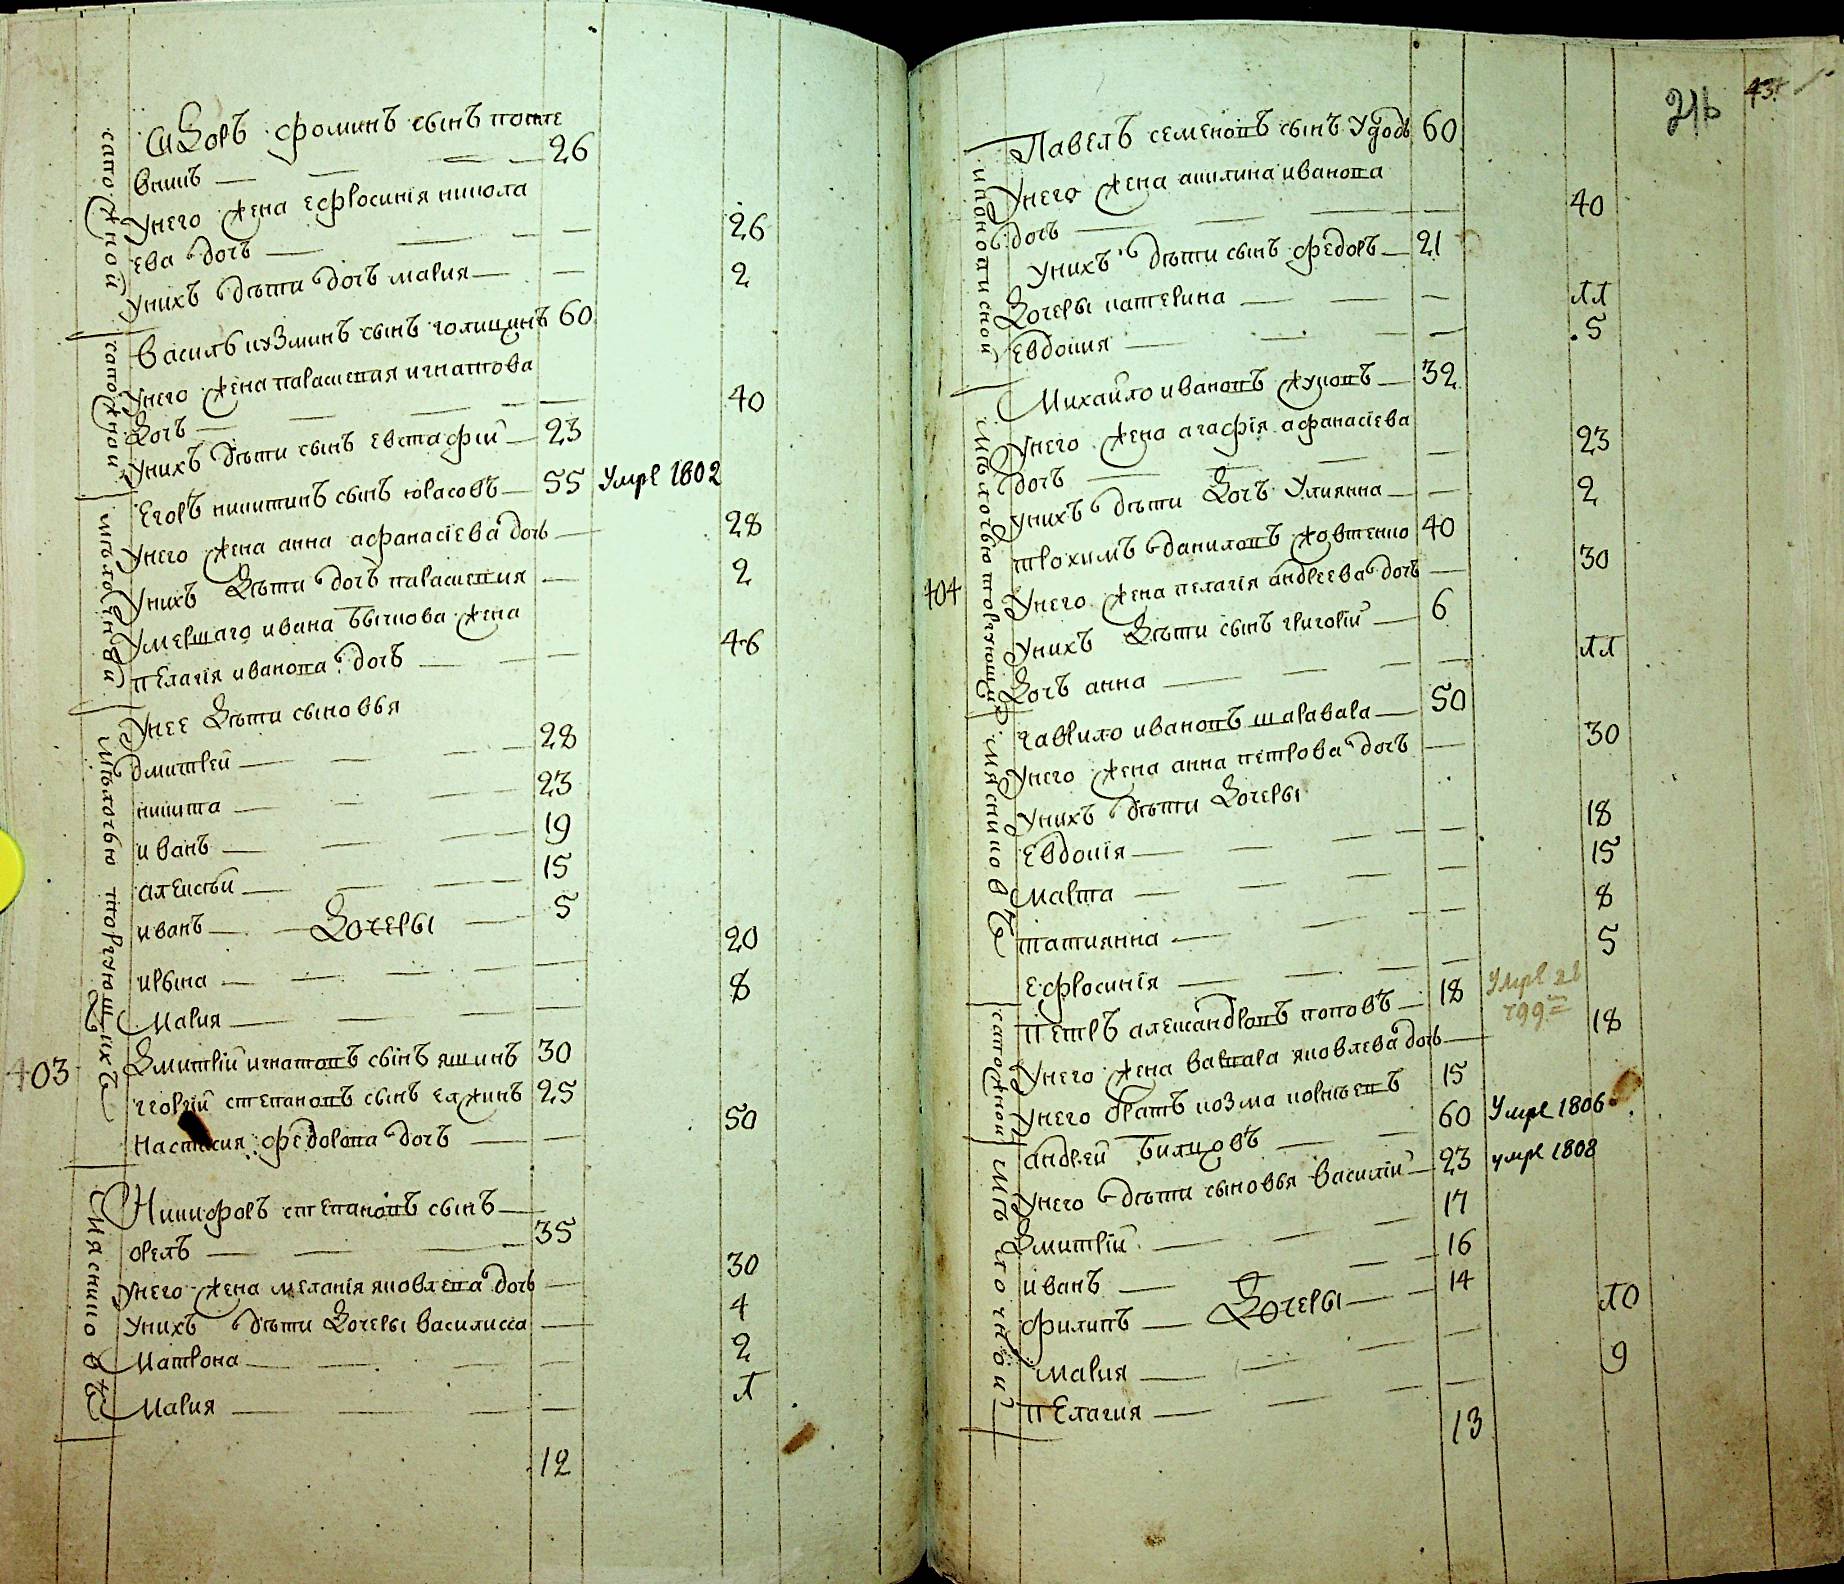 сапожной
Сидоръ фоминъ сынъ
26
Унего жена ефросинія никола
ева дочь 26
Унихъ дѣти дочь мария 2
сапожной
Василь кузминъ сынъ голицинъ 60
Унего жена параскевия игнатова
Дочь 40
Унихъ дѣти сынъ евстафій 23
Егоръ никитинъ сынъ юрасовъ 55 Умре 1802
Унего жена анна афанасіева дочь 28
Унихъ Дѣти дочь параскевия 2
Умершаго ивана бычкова жена
пелагія иванова дочь 46
мѣлочью торгующихъ
Унее Дѣти сыновья
дмитрей 28
никита 23
иванъ 19
алексѣй 15
иванъ 5
Дочеры
ирына 20
Мария 8
403
Дмитрій игнатовъ сынъ яшинъ 30
георгій степановъ сынъ сажинъ 25
настасия федорова дочь 50
Мясниковъ
Никифоръ степановъ сынъ
орелъ 35
Унего жена меланія яковлева дочь 30
Унихъ дѣти Дочеры василисса 4
Матрона 2
Мария 1
12
216
434
Павелъ семеновъ сынъ Удодъ 60
Унего жена акилина иванова
дочь 40
Унихъ дѣти сынъ федоръ 21
Дочеры катерина 11
евдокия 5
мѣлочью торгующихъ
Михайло ивановъ жуковъ 32
Унего жена агафія афанасіева
дочь 23
Унихъ дѣти Дочь Улиянна 2
404
трохимъ даниловъ жовтенко 40
Унего жена пелагія андреева дочь 30
Унихъ Дѣти сынъ григорій 6
Дочь анна 11
мясниковъ
гаврило ивановъ шаравара 50
Унего жена анна петрова дочь 30
Унихъ дѣти Дочеры
Евдокія 18
Марта 15
татиянна 8
ефросинія 5
сапожной
петръ александровъ поповъ 18 Умре
Унего жена варвара яковлева дочь 18
Унего братъ козма корнѣевъ 15
мѣлочной
андрей билцовъ 60 Умре 1806
Унего дѣти сыновья василій 23 умре 1808
Дмитрій 17
иванъ 16
филипъ 14
Дочеры
мария 10
пелагия 9
13